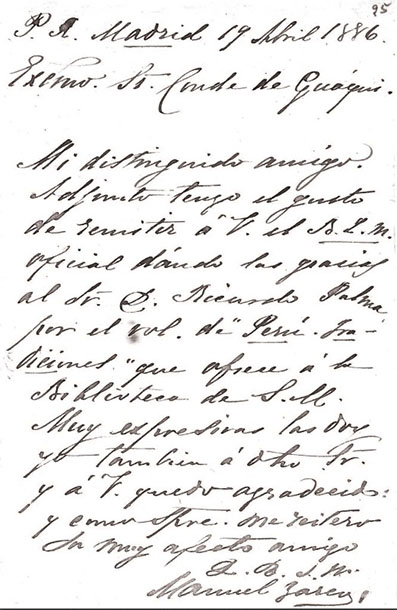 95
P. A. Madrid 19 Abril 1886.
Excmo. Sr. Conde de Guaqui.
Mi distinguido amigo.
Adjunto tengo el gusto
de remitir á V. el B. L. M.
oficial dándo las gracias
al Sr. D. Ricardo Palma
por el vol. de "Perú. Tra-
diciones" que ofrece á la
Biblioteca de S. M.
Muy expresivas las doy
yo tambien á dho Sr.
y á V. quedo agradecido:
y como spre. me reitero
su muy afecto amigo
Q. B. S. M.
Manuel